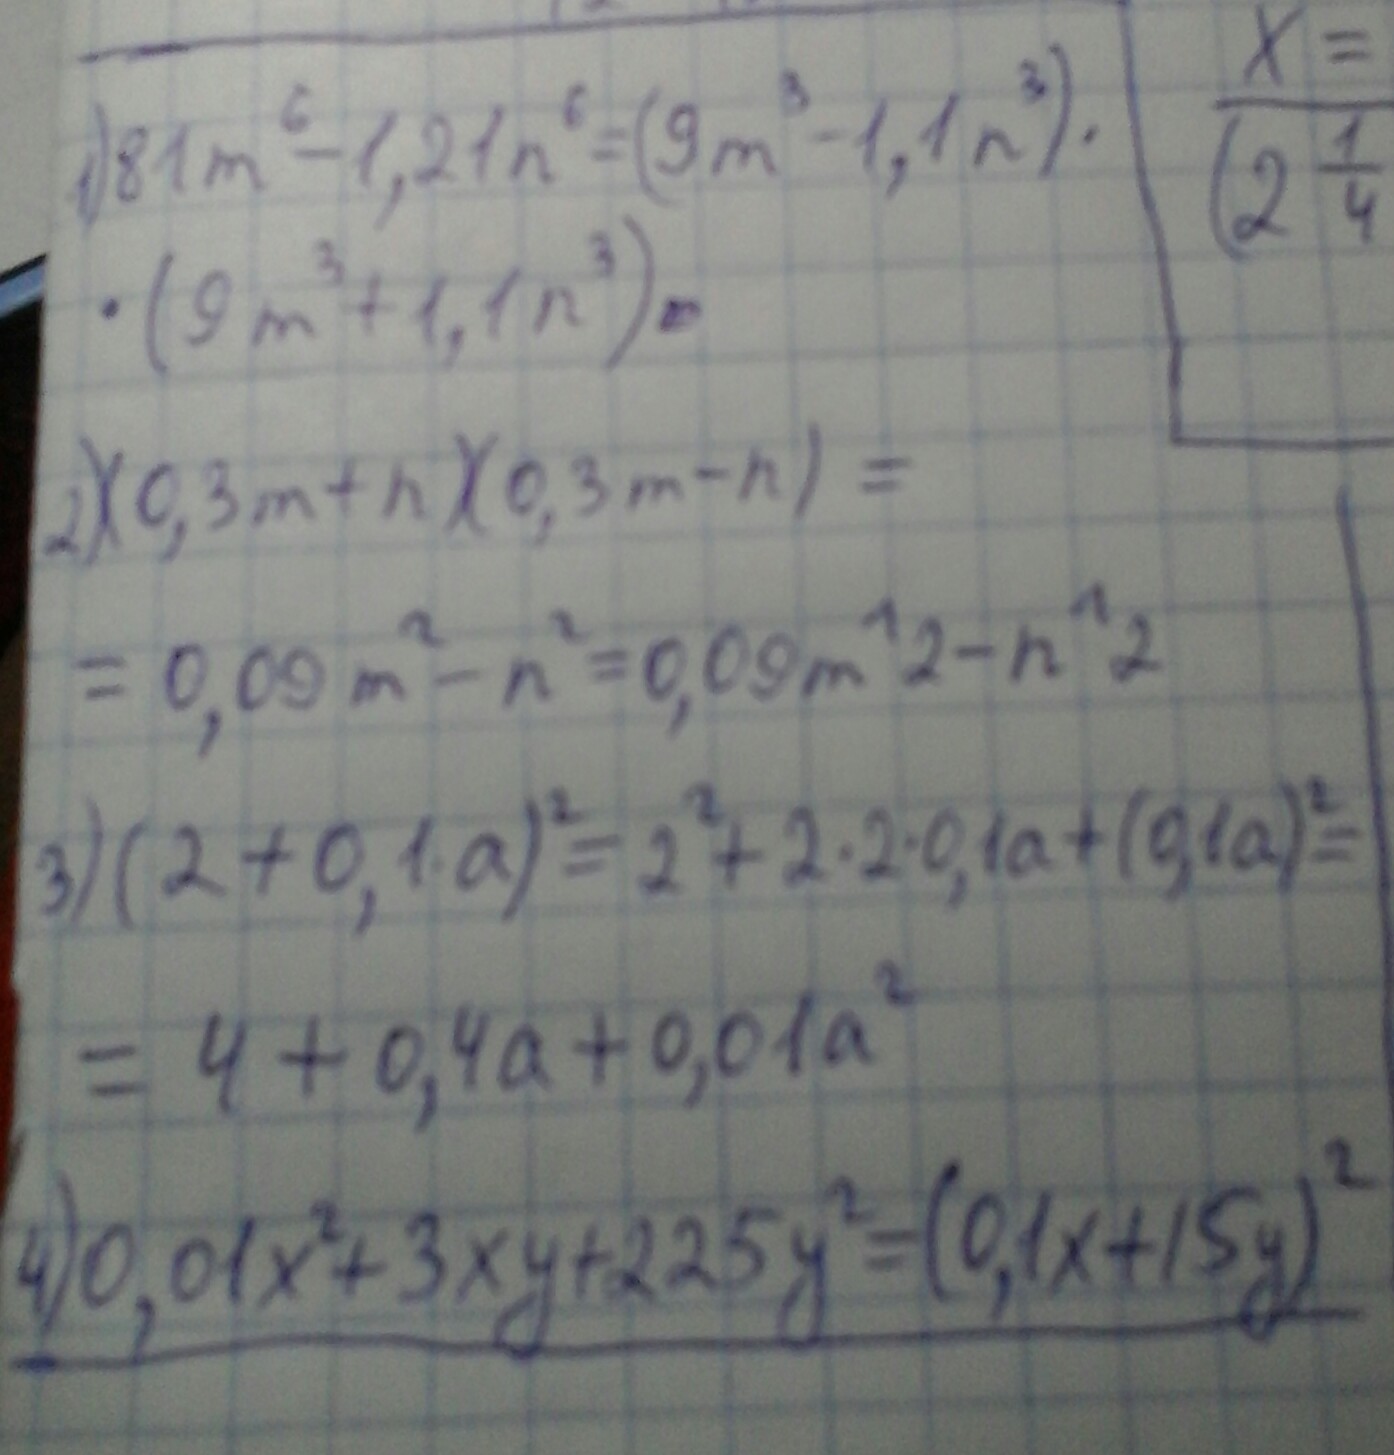 1) 81m⁶ - 1,21n⁶ = (9m³ - 1,1n³) ·
· (9m³ + 1,1n³)
2) (0,3m + n)(0,3m - n) =
= 0,09m² - n² = 0,09m^2 - n^2
3) (2 + 0,1·a)² = 2² + 2·2·0,1a + (0,1a)² =
= 4 + 0,4a + 0,01a²
4) 0,01x² + 3xy + 225y² = (0,1x + 15y)²
x =
(2 1/4